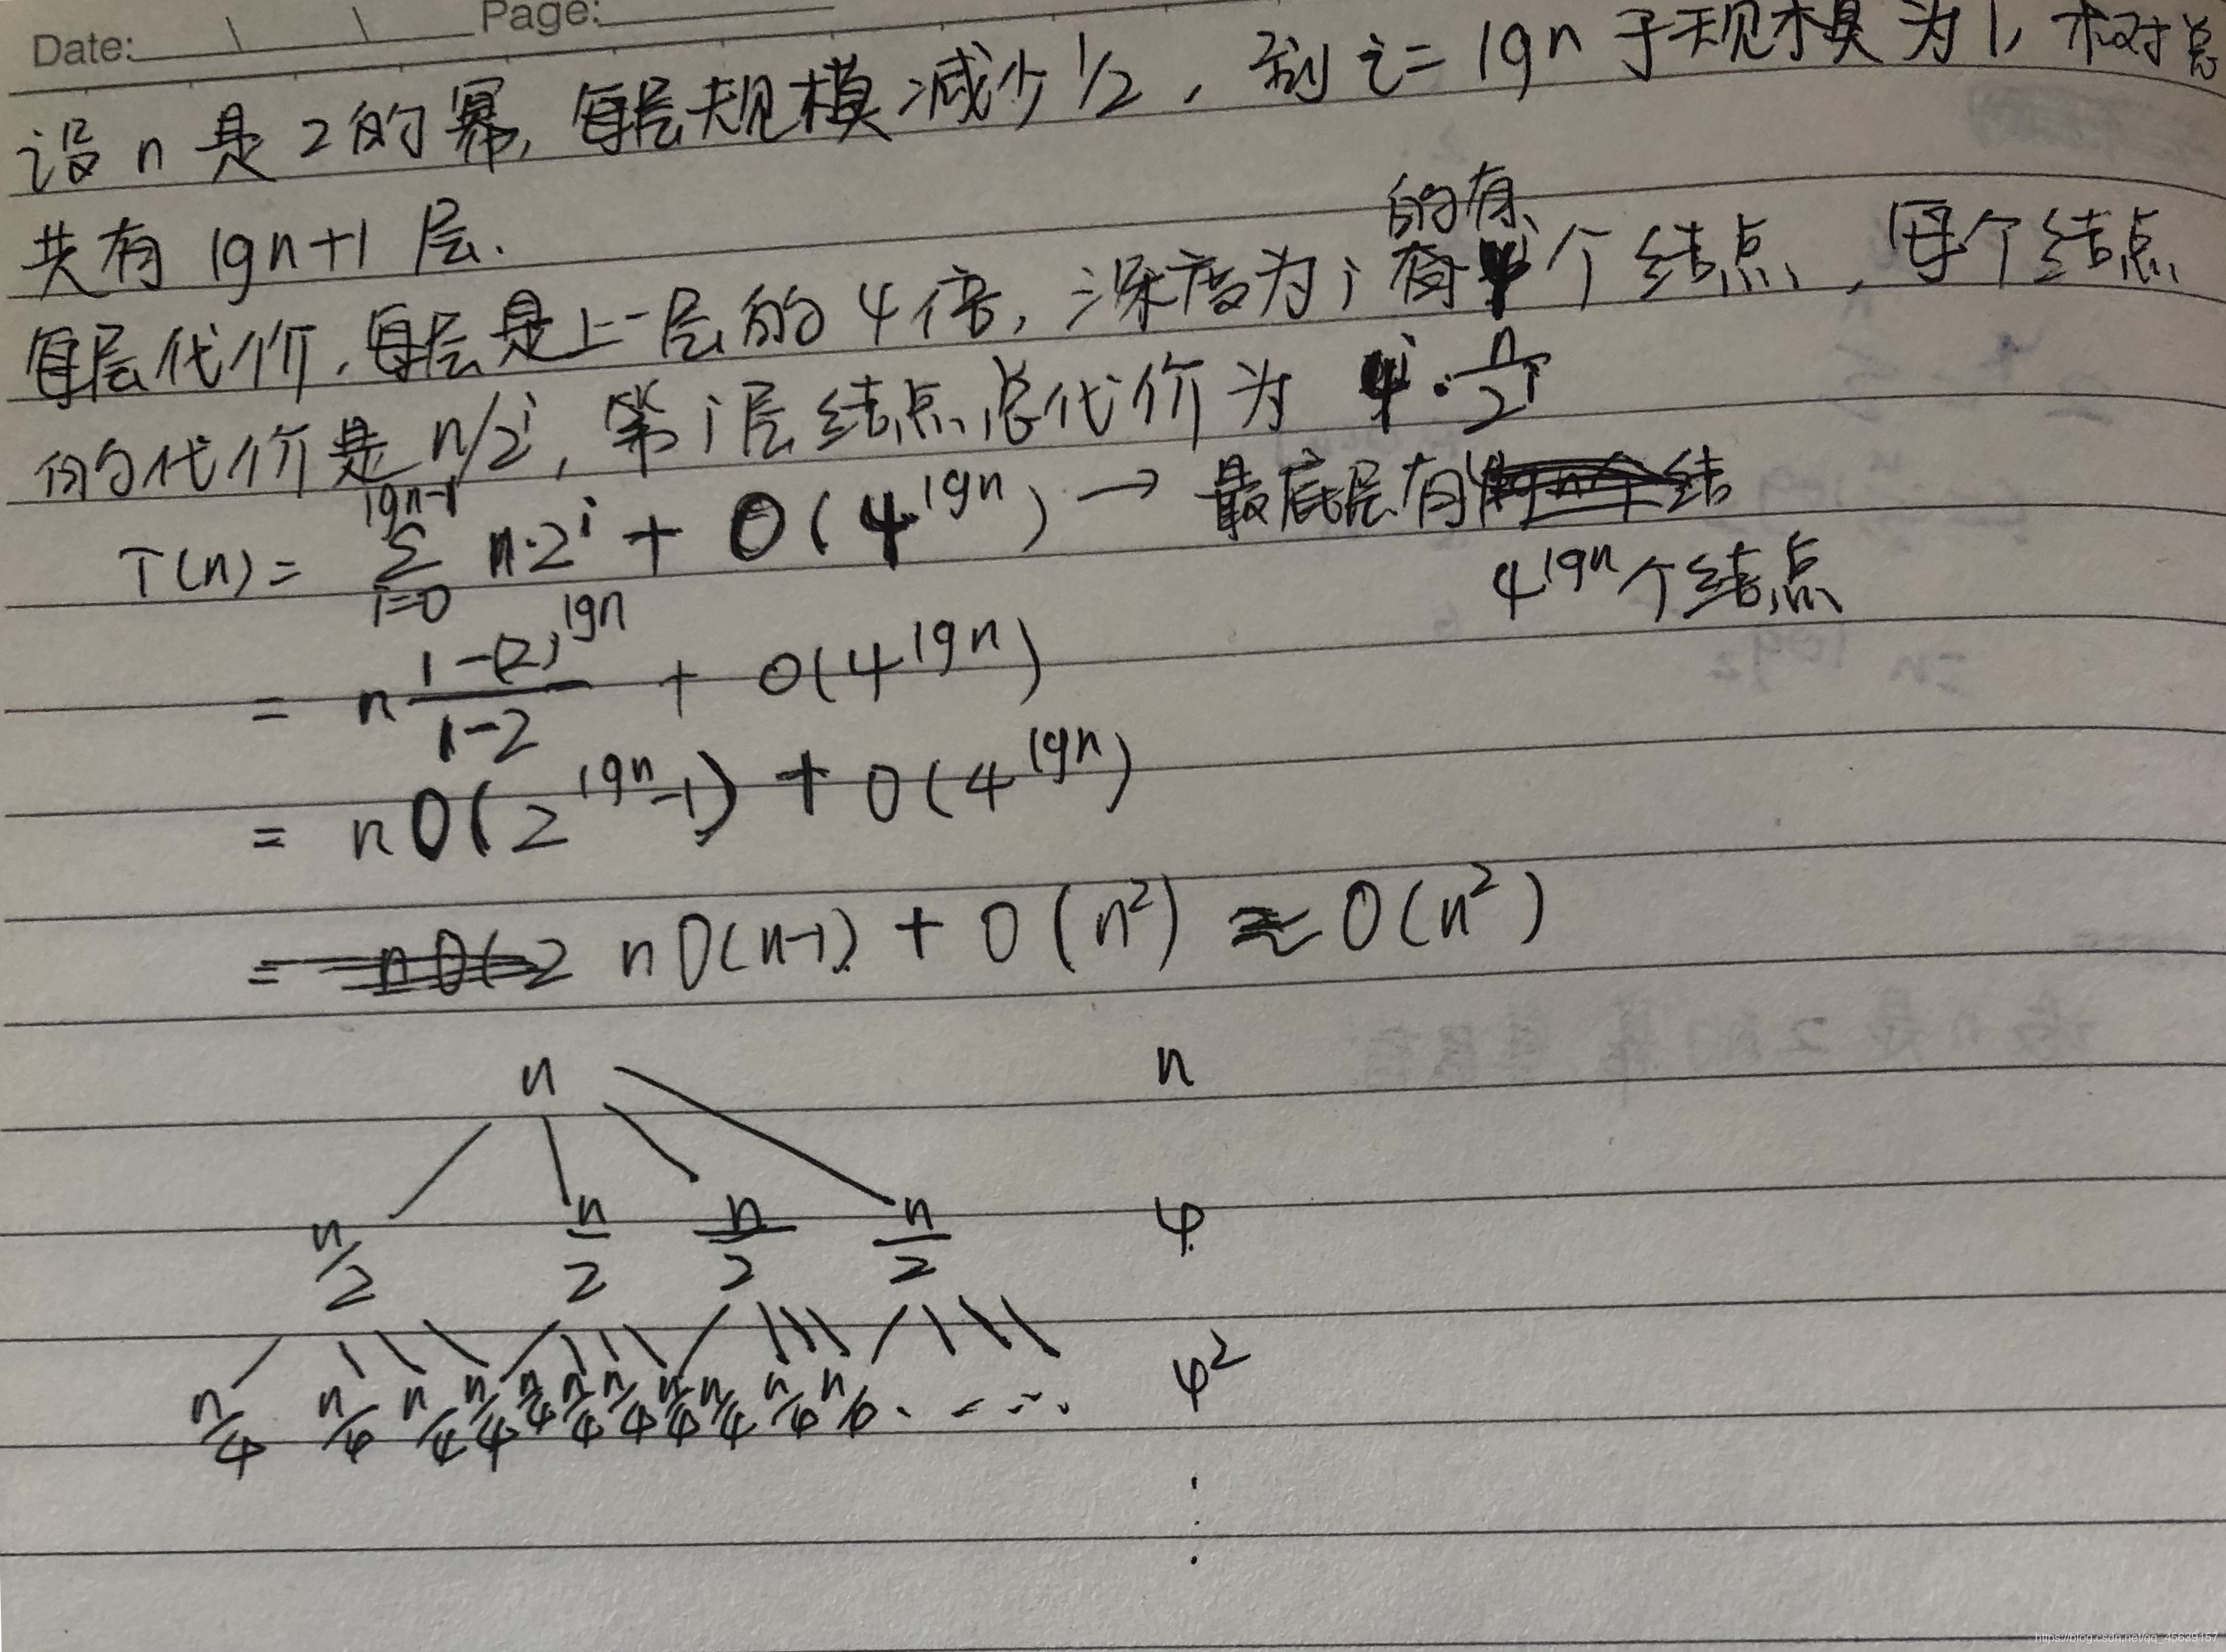 Date: \ \ Page:
设 n 是 2 的幂, 每层规模减少 1/2 , 到 i = lgn 子规模为 1, 树总
共有 lgn+1 层.
的有
每层代价. 每层是上一层的 4 倍, 深度为 i 个结点, 每个结点
的代价是 n/2^i, 第 i 层结点总代价为 4^i · n/2^i
T(n) = Σ_{i=0}^{lgn-1} n·2^i + O(4^{lgn}) → 最底层有
4^{lgn} 个结点
= n (1-(2)^{lgn})/(1-2) + O(4^{lgn})
= n O(2^{lgn}-1) + O(4^{lgn})
= n O(n-1) + O(n²) ≈ O(n²)
n n
n/2 n/2 n/2 n/2 4
n/4 n/4 n/4 n/4 n/4 n/4 n/4 n/4 n/4 n/4 4²
https://blog.csdn.net/qq_45639157